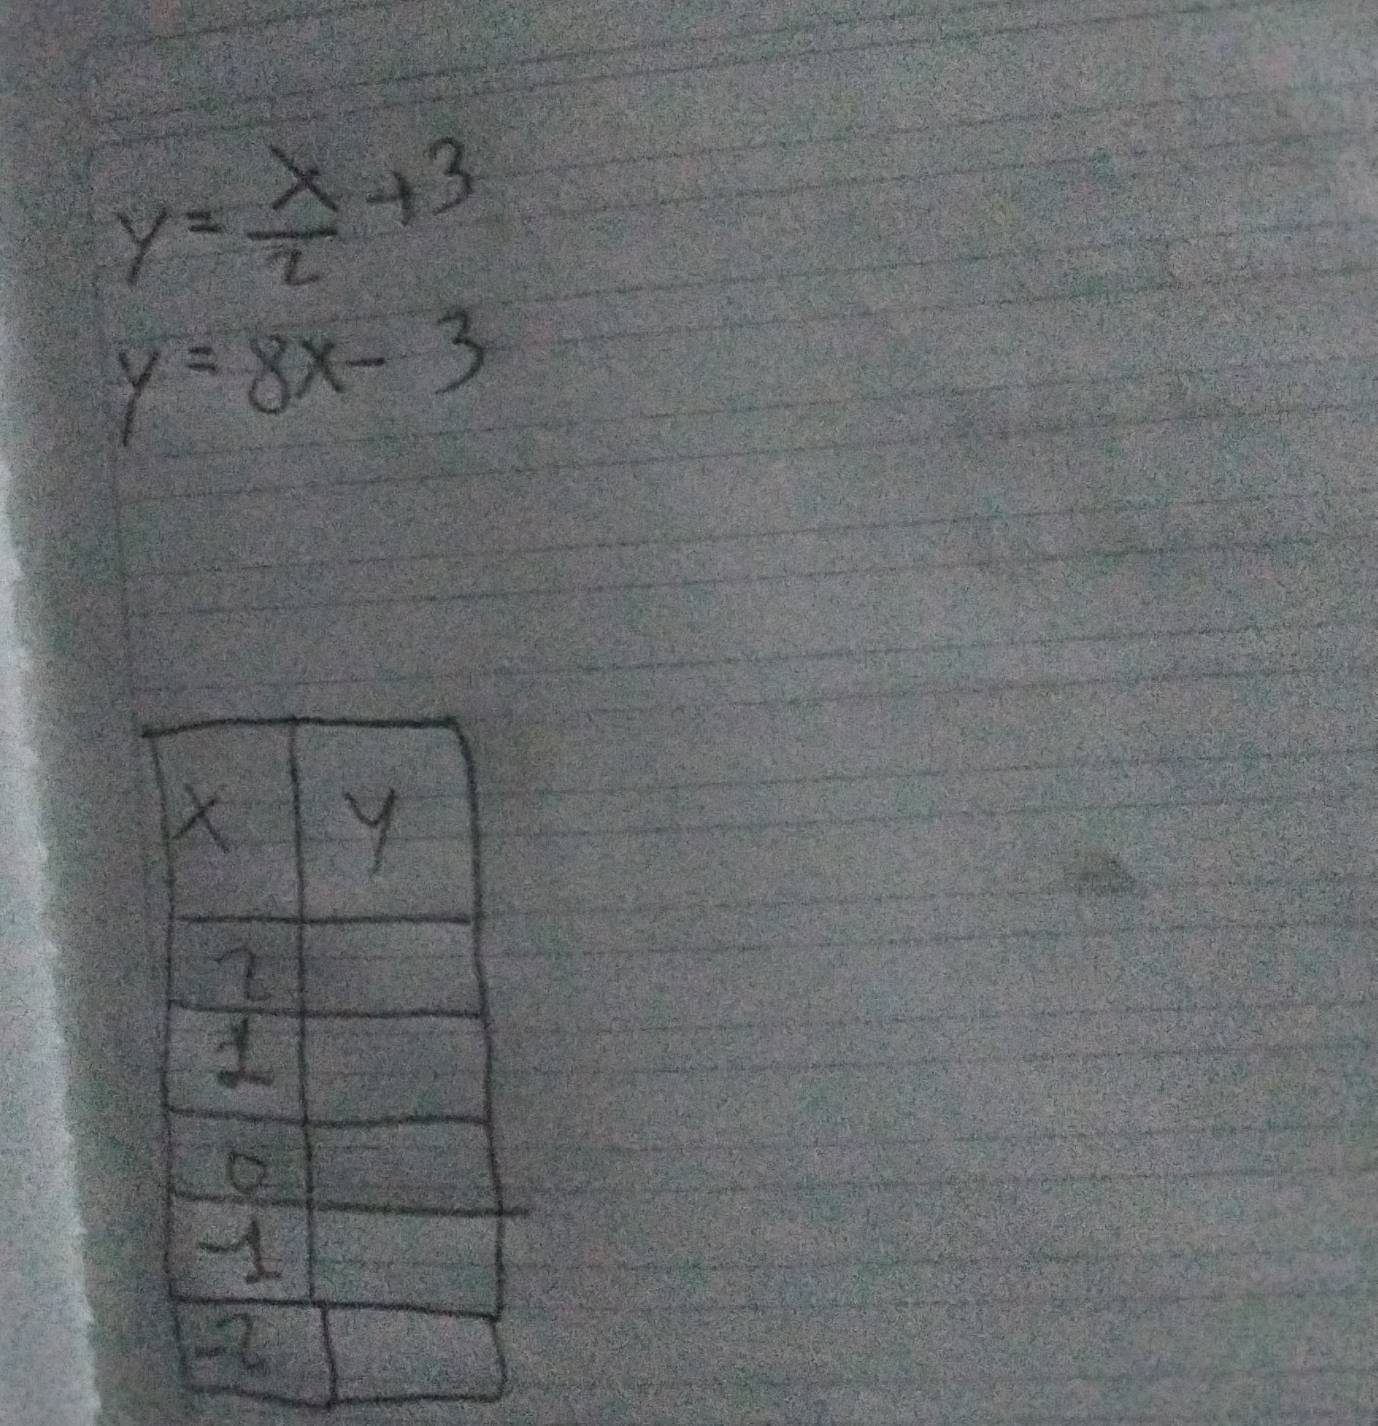 y = x/2 + 3
y = 8x - 3
x y
2
1
0
-1
-2